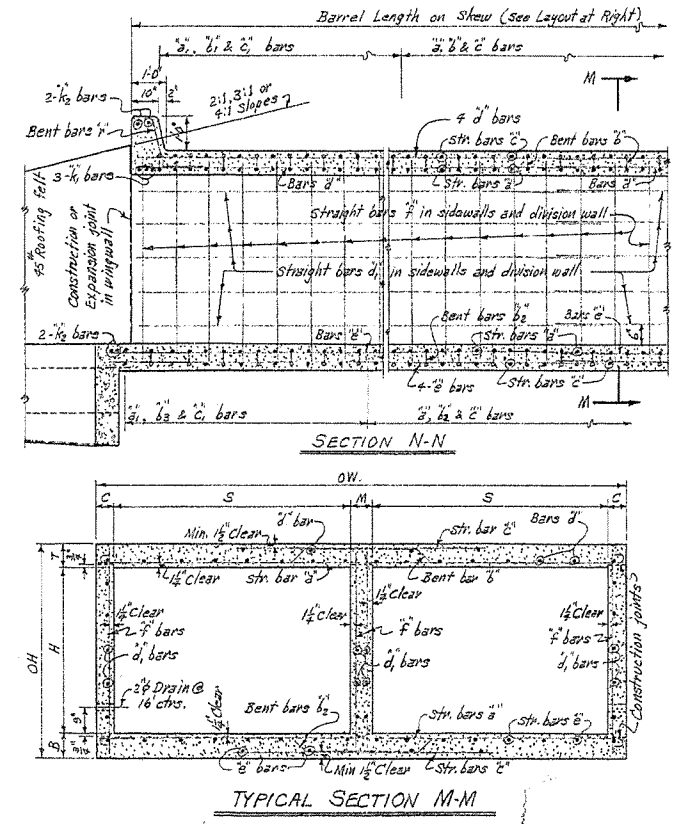 Barrel Length on Skew (see Layout at Right)
"a₁", "b₁" & "c₁" bars
"a", "b" & "c" bars
1'-0"
10"
2"
M
2-"k₂" bars
2:1, 3:1 or
4:1 Slopes
Bent bars "r"
4 "d" bars
Str. bars "c"
Bent bars "b"
3-"k₁" bars
Bars "d"
Str. bars "a"
Bars "d"
45# Roofing felt
Construction or
Expansion joint
in wingwall
Straight bars "f" in sidewalls and division wall
Straight bars "d₁" in sidewalls and division wall
2-"k₂" bars
Bars "e"
Bent bars "b₂"
Str. bars "a"
Bars "e"
6"
4-"e" bars
Str. bars "c"
M
"a₁", "b₃" & "c₁" bars
"a", "b₂" & "c" bars
SECTION N-N
OW.
C
S
M
S
C
Min. 1½" Clear
"d" bar
Str. bar "c"
Bars "d"
T
1¼" Clear
Str. bar "a"
Bent bar "b"
OH
H
1¼" Clear
"f" bars
"d₁" bars
1¼" Clear
1¼" Clear
"f" bars
"d₁" bars
1¼" Clear
"f" bars
"d₁" bars
Construction joints
2"ϕ Drain @
16' ctrs.
9"
B
1¼" Clear
Bent bars "b₂"
Str. bars "a"
Str. bars "e"
"e" bars
Min 1½" Clear
Str. bars "c"
TYPICAL SECTION M-M